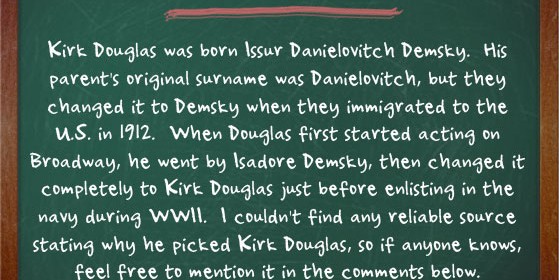 Kirk Douglas was born Issur Danielovitch Demsky. His
parent's original surname was Danielovitch, but they
changed it to Demsky when they immigrated to the
U.S. in 1912. When Douglas first started acting on
Broadway, he went by Isadore Demsky, then changed it
completely to Kirk Douglas just before enlisting in the
navy during WWII. I couldn't find any reliable source
stating why he picked Kirk Douglas, so if anyone knows,
feel free to mention it in the comments below.